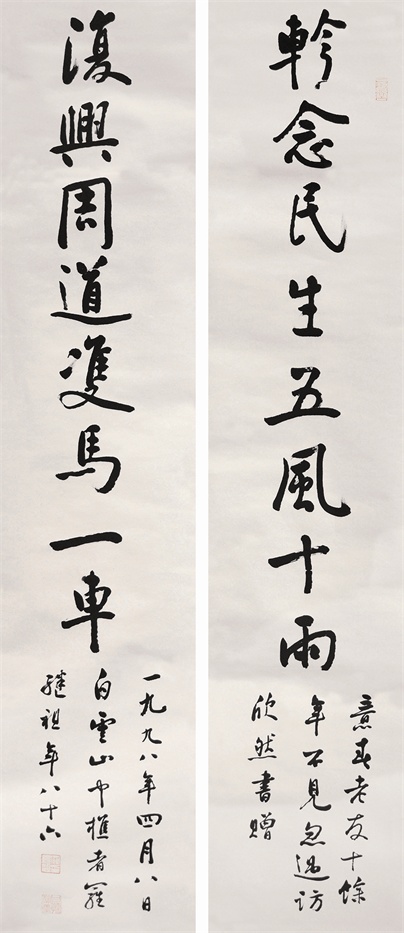 軫念民生五風十雨
意老友十餘
年不見忽過訪
欣然書贈
復興周道雙馬一車
一九九八年四月八日
白雲山中樵者羅
繼祖年八十六